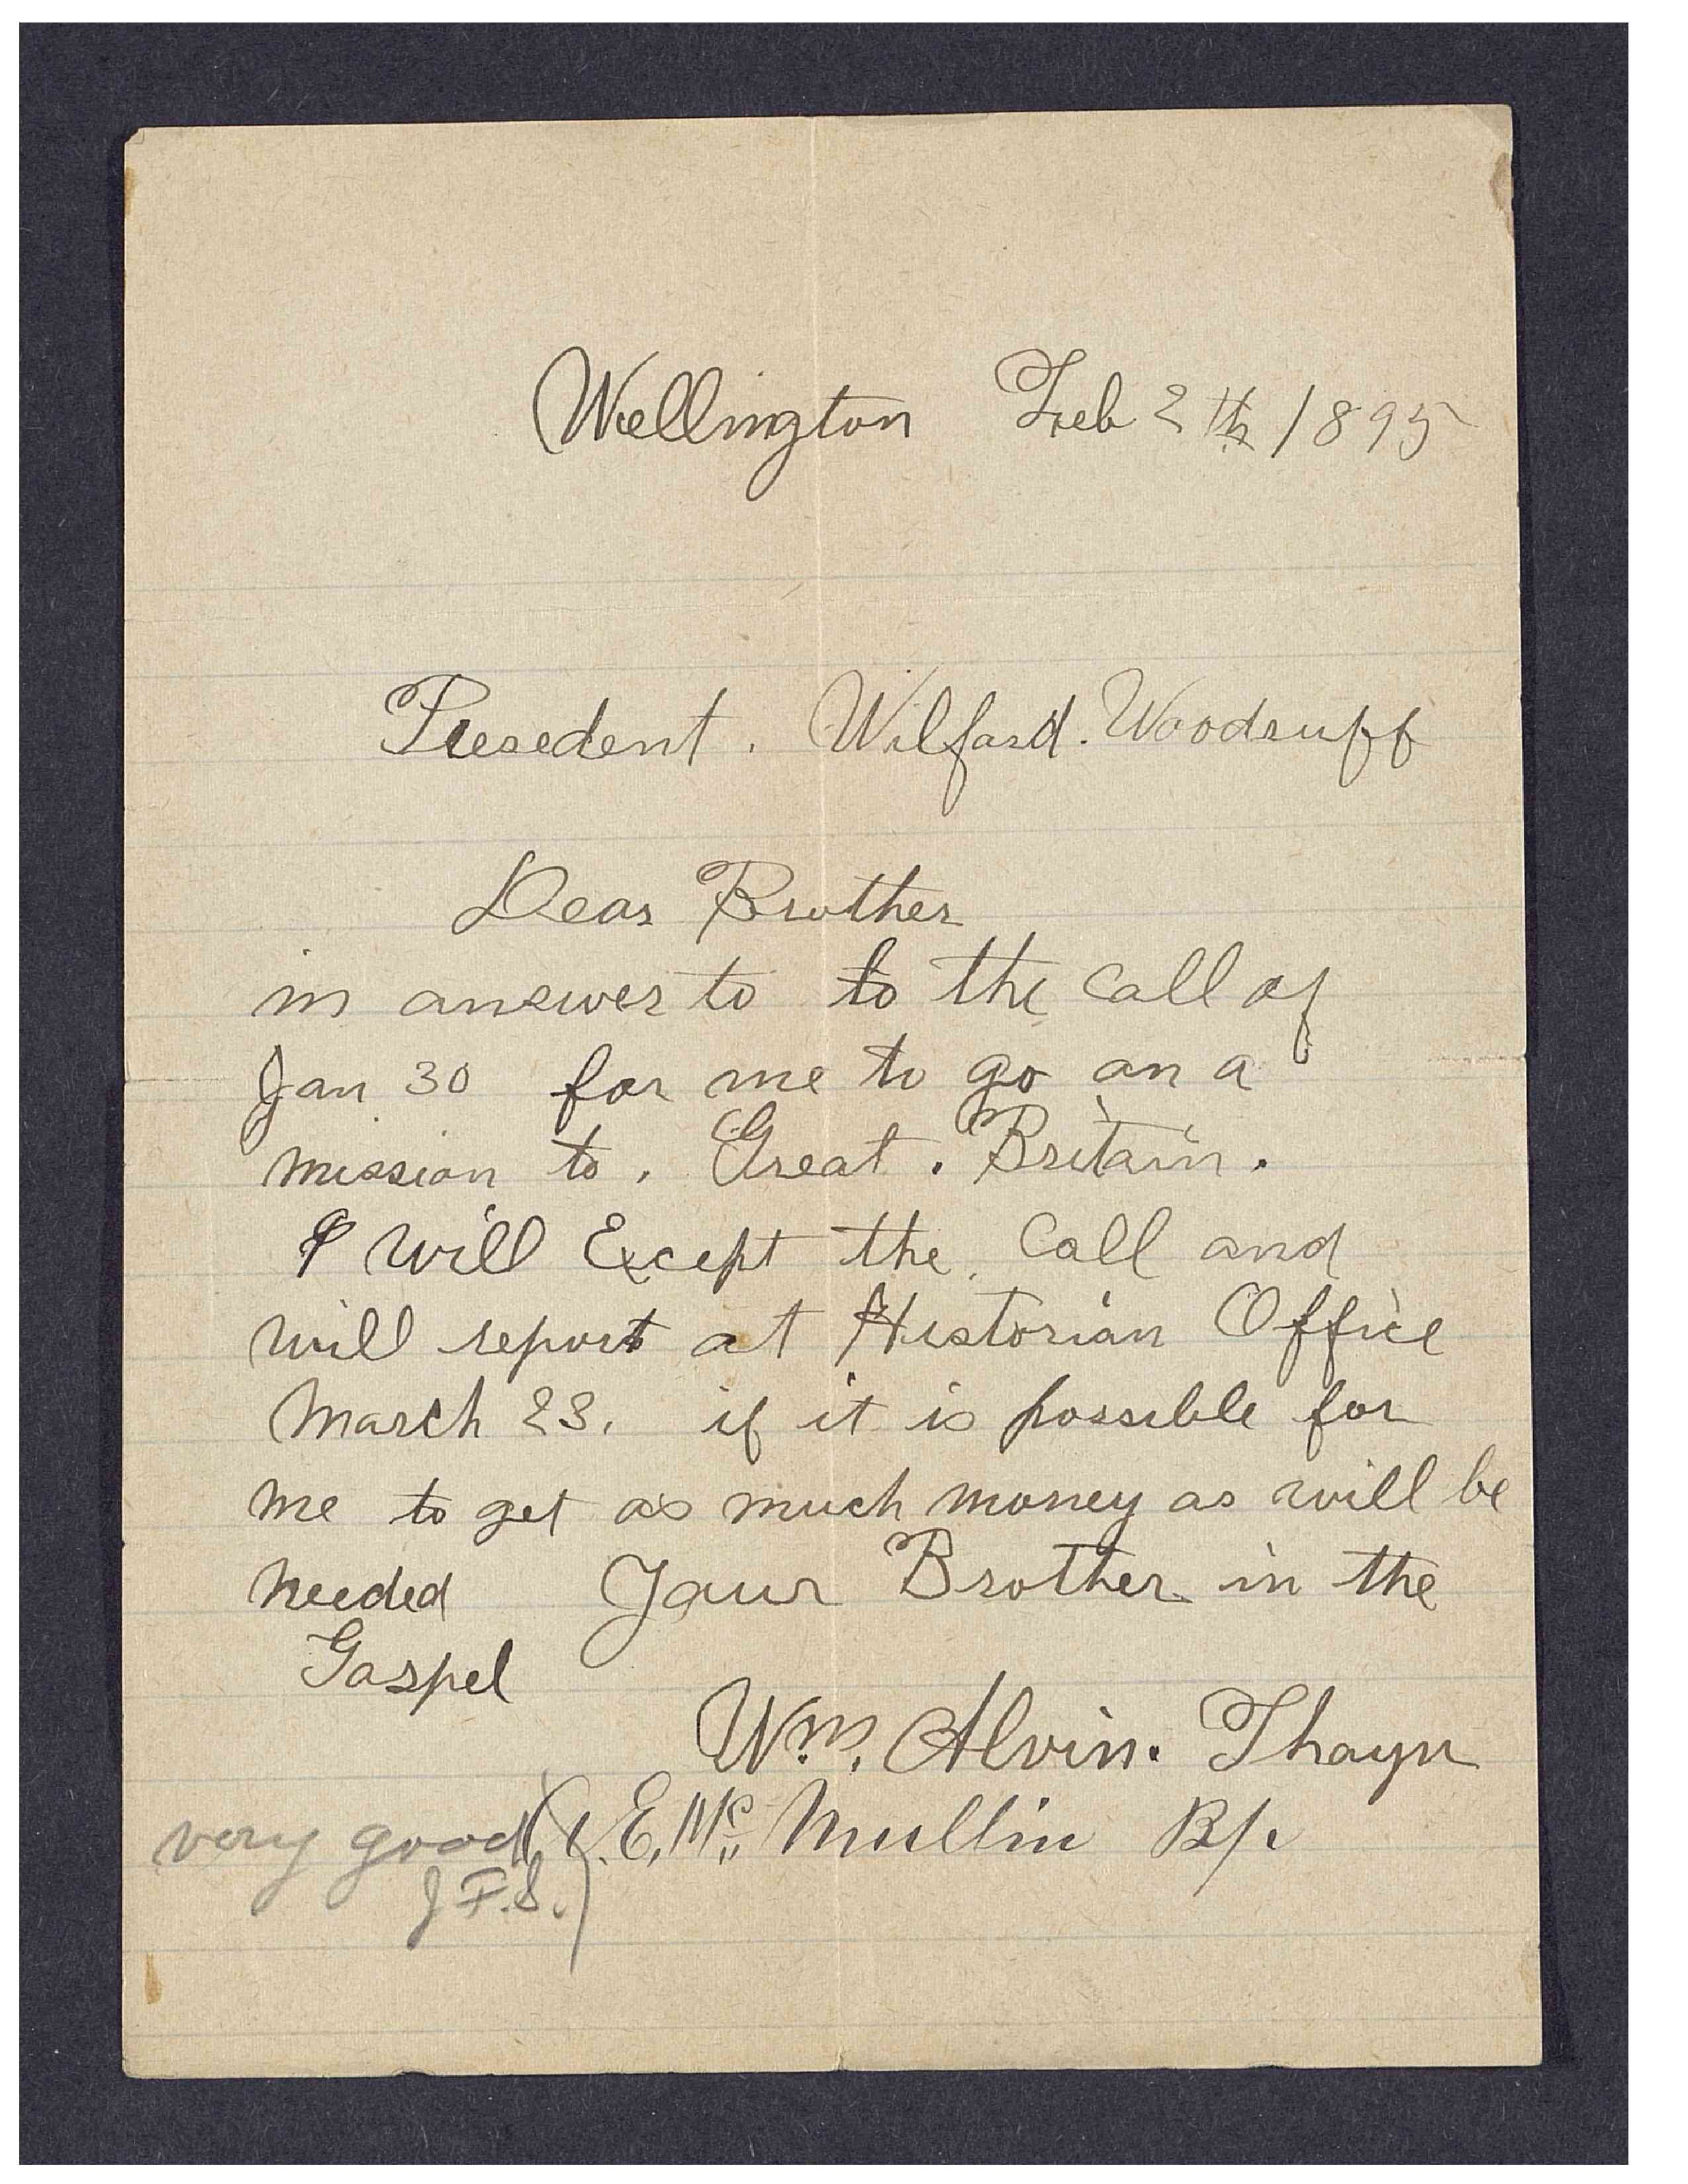 Wellington Feb 2th 1895
Presedent. Wilford. Woodruff
Dear Brother
in answer to to the call of
Jan 30 for me to go on a
mission to. Great. Britain.
I will Except the. Call and
will report at Historian Office
March 23. if it is possible for
me to get as much money as will be
needed Your Brother in the
Gospel
Wm. Alvin. Thayn
very good E. Mc. Mullin Bp.
J F. S.